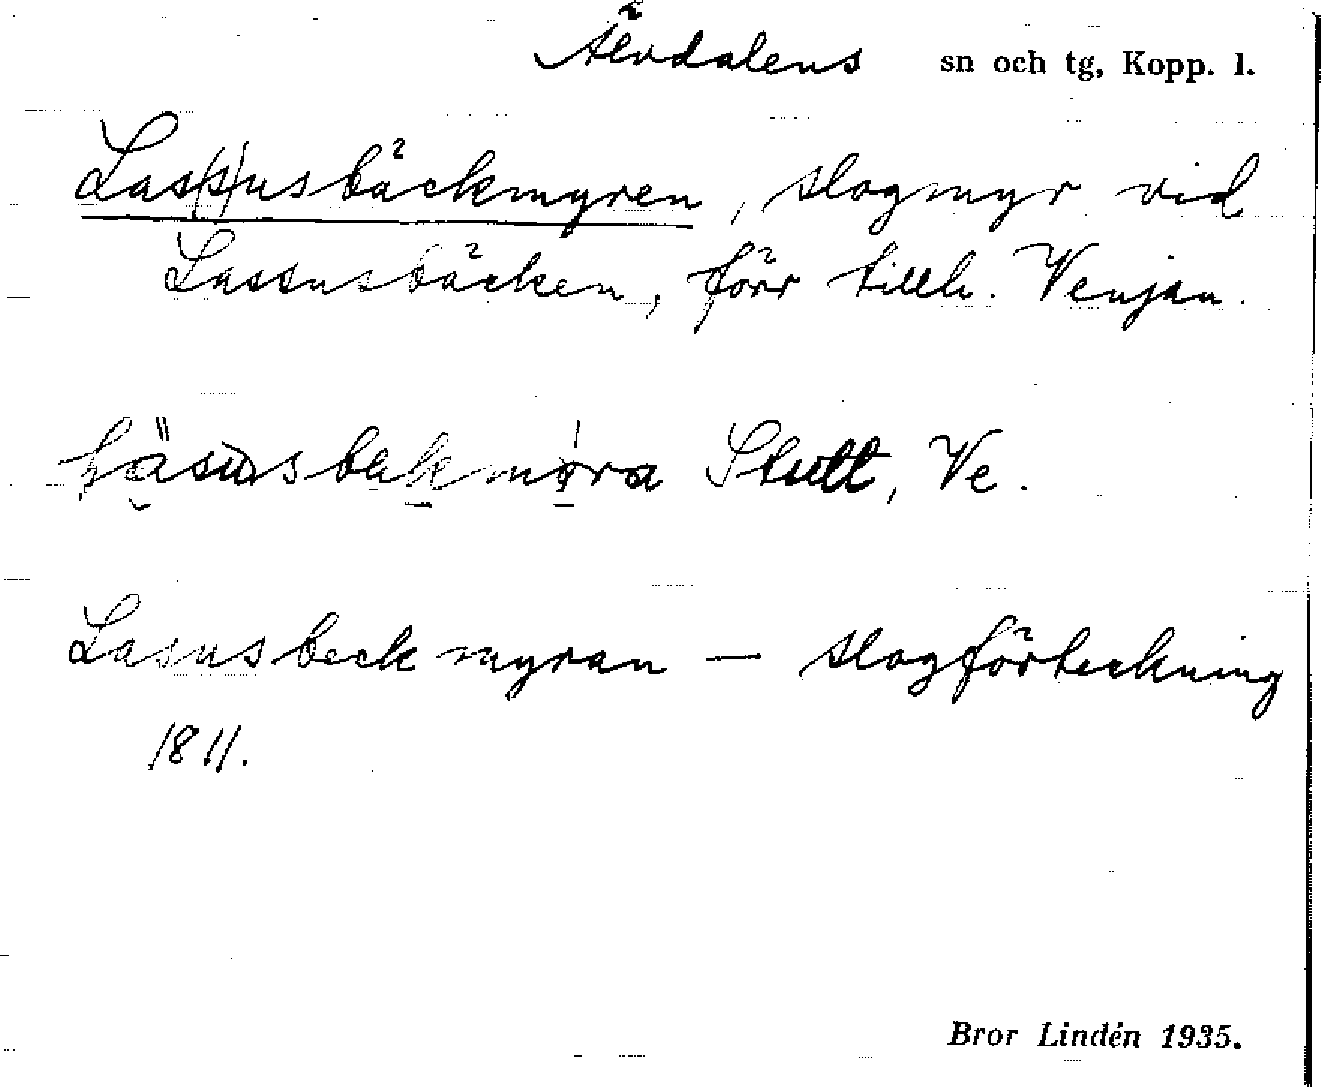 Älvdalens sn och tg, Kopp. l.
Las(s)usbäckmyren, slogmyr vid
Lassusbäcken, förr tillh. Venjan.
Stutt, Ve.
Lasusbeckmyran — slogförteckning
1811.
Bror Lindén 1935.